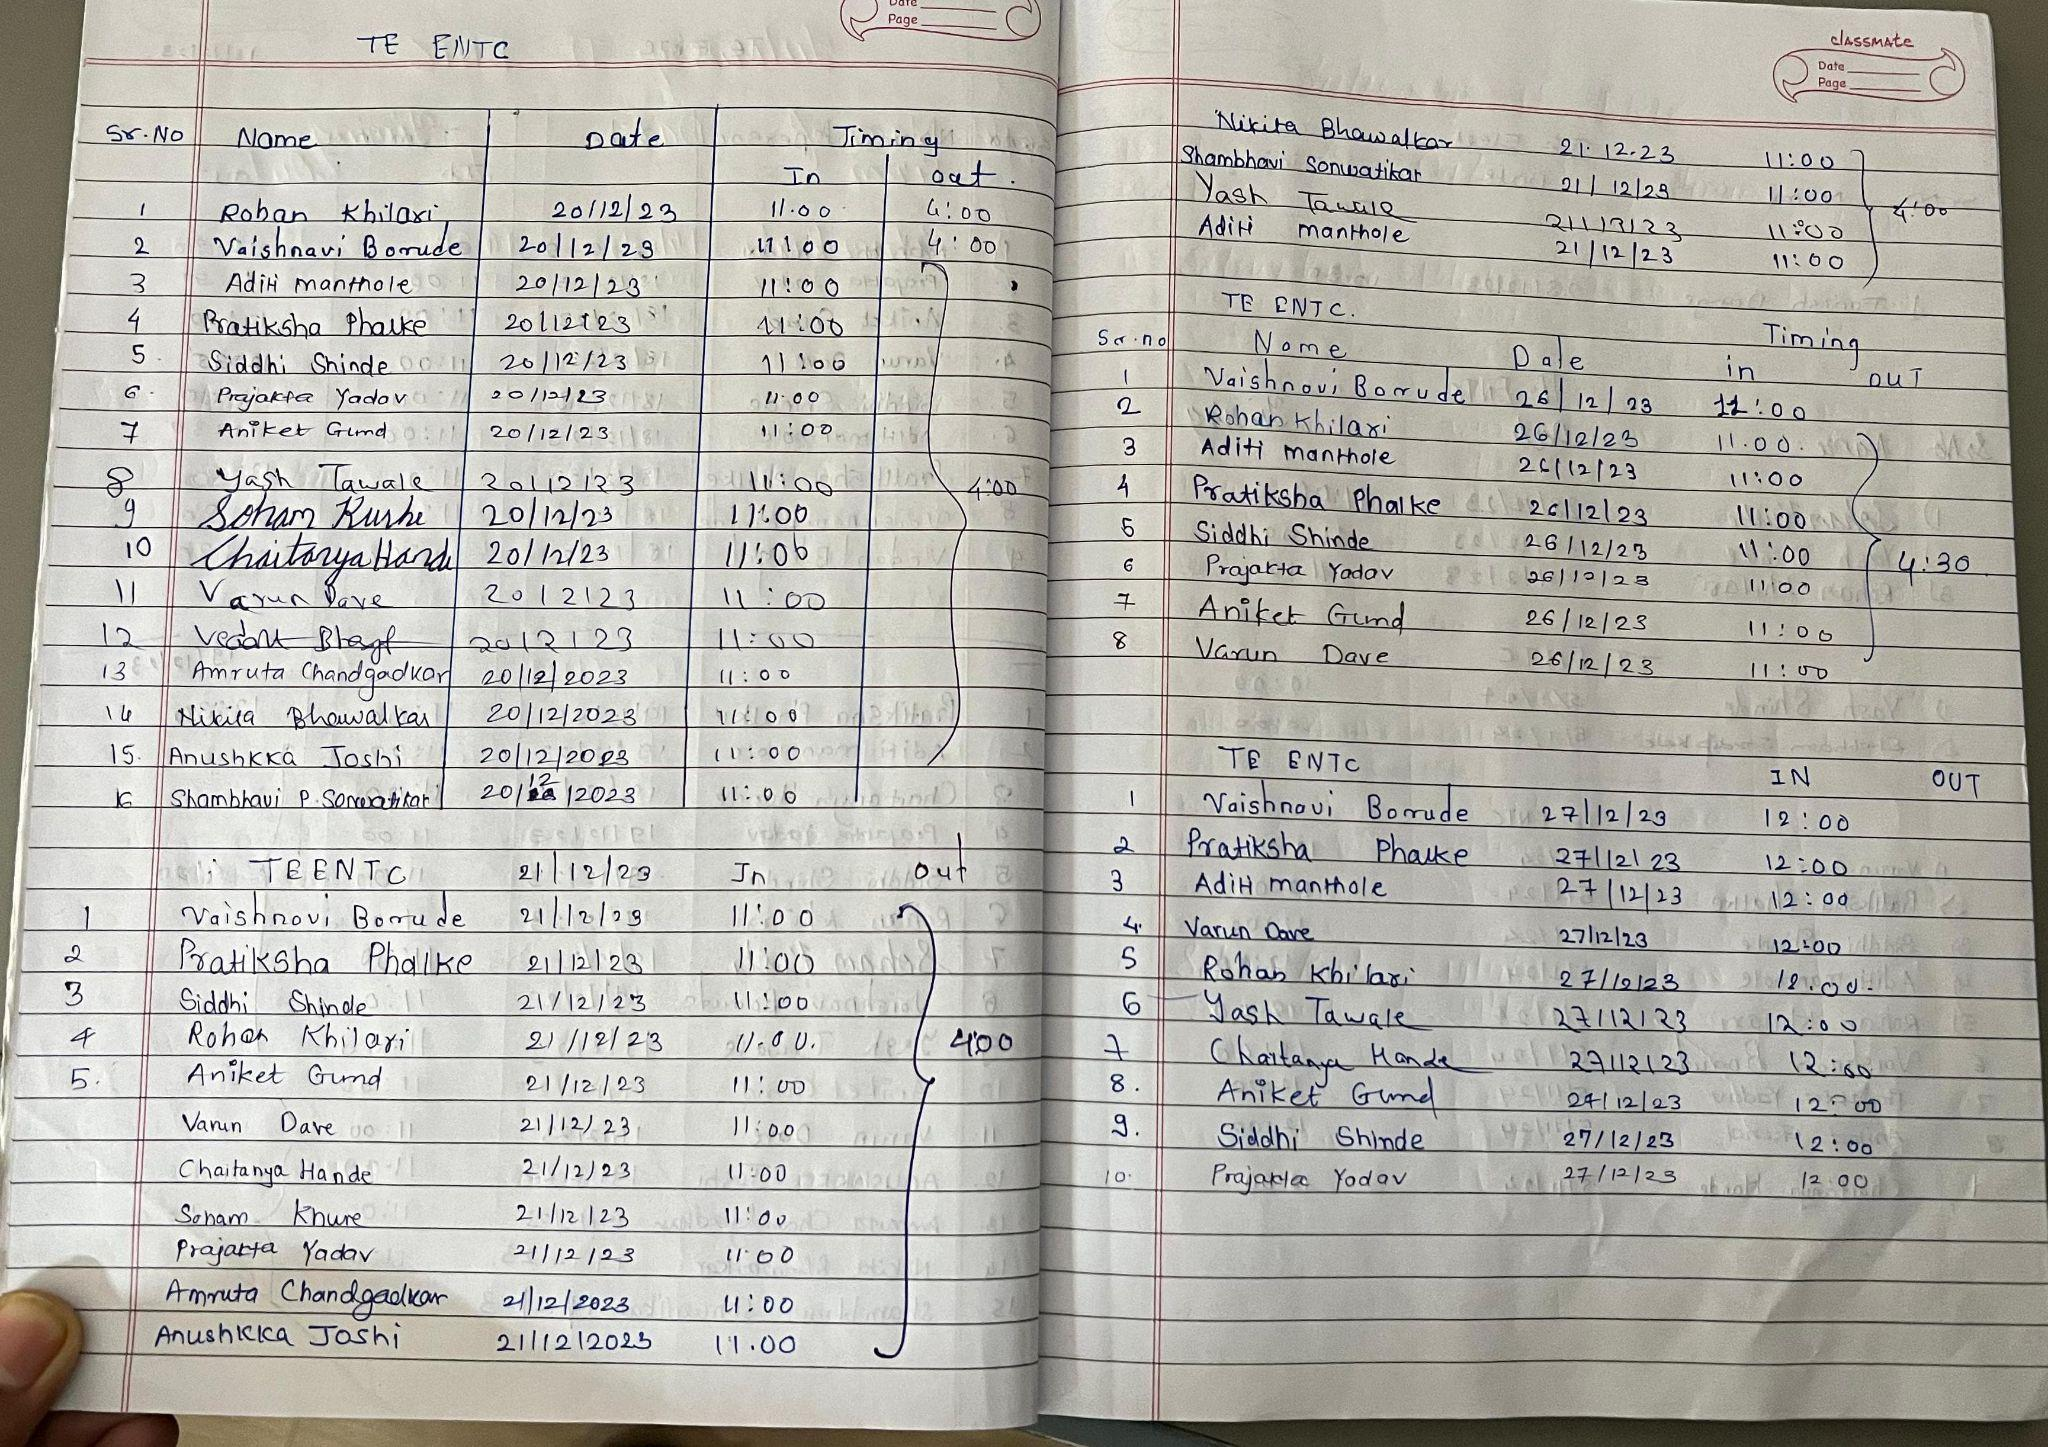 Date
Page
TE ENTC
Sr.No Name Date Timing
In out.
1 Rohan Khilari 20/12/23 11.00 4:00
2 Vaishnavi Borude 20/12/23 11:00 4:00
3 Aditi manthole 20/12/23 11:00
4 Pratiksha Phalke 20/12/23 11:00
5. Siddhi Shinde 20/12/23 11:00
6. Prajakta Yadav 20/12/23 11:00
7 Aniket Gund 20/12/23 11:00
8 Yash Tawale 20/12/23 11:00 4:00
9 Soham 20/12/23 11:00
10 Chaitanya Hande 20/12/23 11:00
11 Varun Dave 20/12/23 11:00
12 20/12/23 11:00
13 Amruta Chandgadkar 20/12/2023 11:00
14 Nikita Bhawalkar 20/12/2023 11:00
15. Anushkka Joshi 20/12/2023 11:00
16 Shambhavi P. Sonwatikar 20/12/2023 11:00
TEENTC 21/12/23 In out
1 Vaishnavi Borude 21/12/23 11:00
2 Pratiksha Phalke 21/12/23 11:00
3 Siddhi Shinde 21/12/23 11:00
4 Rohan Khilari 21/12/23 11.00. 4:00
5. Aniket Gund 21/12/23 11:00
Varun Dave 21/12/23 11:00
Chaitanya Hande 21/12/23 11:00
Soham Khure 21/12/23 11:00
Prajakta Yadav 21/12/23 11:00
Amruta Chandgadkar 21/12/2023 11:00
Anushkka Joshi 21/12/2023 11.00
classmate
Date
Page
Nikita Bhawalkar 21.12.23 11:00
Shambhavi Sonwatikar 21/12/23 11:00
Yash Tawale 21/12/23 11:00 4:00
Aditi manthole 21/12/23 11:00
TE ENTC.
Sr.no Name Date Timing
in OUT
1 Vaishnavi Borude 26/12/23 11:00
2 Rohan Khilari 26/12/23 11.00.
3 Aditi manthole 26/12/23 11:00
4 Pratiksha Phalke 26/12/23 11:00
5 Siddhi Shinde 26/12/23 11:00 4:30
6 Prajakta Yadav 26/12/23 11:00
7 Aniket Gund 26/12/23 11:00
8 Varun Dave 26/12/23 11:00
TE ENTC IN OUT
1 Vaishnavi Borude 27/12/23 12:00
2 Pratiksha Phalke 27/12/23 12:00
3 Aditi manthole 27/12/23 12:00
4. Varun Dave 27/12/23 12:00
5 Rohan Khilari 27/12/23 12.00.
6 Yash Tawale 27/12/23 12:00
7 Chaitanya Hande 27/12/23 12:00
8. Aniket Gund 27/12/23 12:00
9. Siddhi Shinde 27/12/23 12:00
10. Prajakta Yadav 27/12/23 12:00